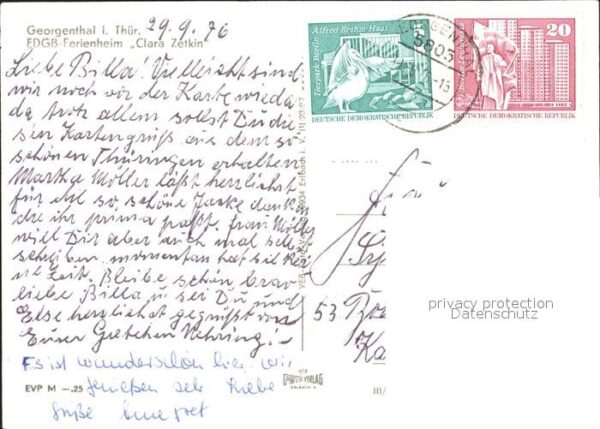 Georgenthal i. Thür. 29.9.76
FDGB-Ferienheim „Clara Zetkin"
Liebe Billa! Vielleicht sind
wir noch vor der Karte wieder
da trotz allem sollst Du die
sen Kartengruß aus dem so
schönen Thüringen erhalten
Martha Möller läßt herzlichst
für die so schöne Jacke danken
die ihr prima paßt. Frau Möller
will Dir aber auch mal selbst
schreiben, momentan hat sie kei
ne Zeit. Bleibe schön brav
liebe Billa u sei Du und
Else herzlichst gegrüßt von
Eurer Gretchen Nehring!-
Es ist wunderschön hier wir
genießen sehr Liebe
Grüße
EVP M —.25
Alfred-Brehm-Haus
Tierpark Berlin
DEUTSCHE DEMOKRATISCHE REPUBLIK
20
DEUTSCHE DEMOKRATISCHE REPUBLIK
5805
53
privacy protection
Datenschutz
VERLAG
III/